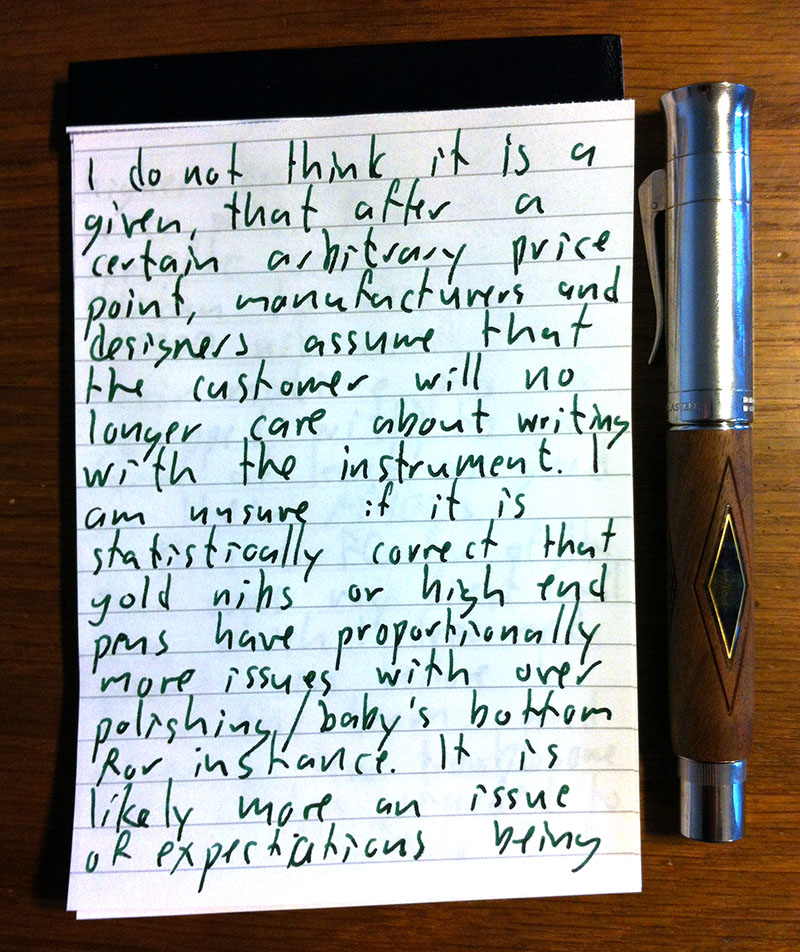 I do not think it is a
given, that after a
certain arbitrary price
point, manufacturers and
designers assume that
the customer will no
longer care about writing
with the instrument. I
am unsure if it is
statistically correct that
gold nibs or high end
pens have proportionally
more issues with over
polishing/baby's bottom
for instance. It is
likely more an issue
of expectations being